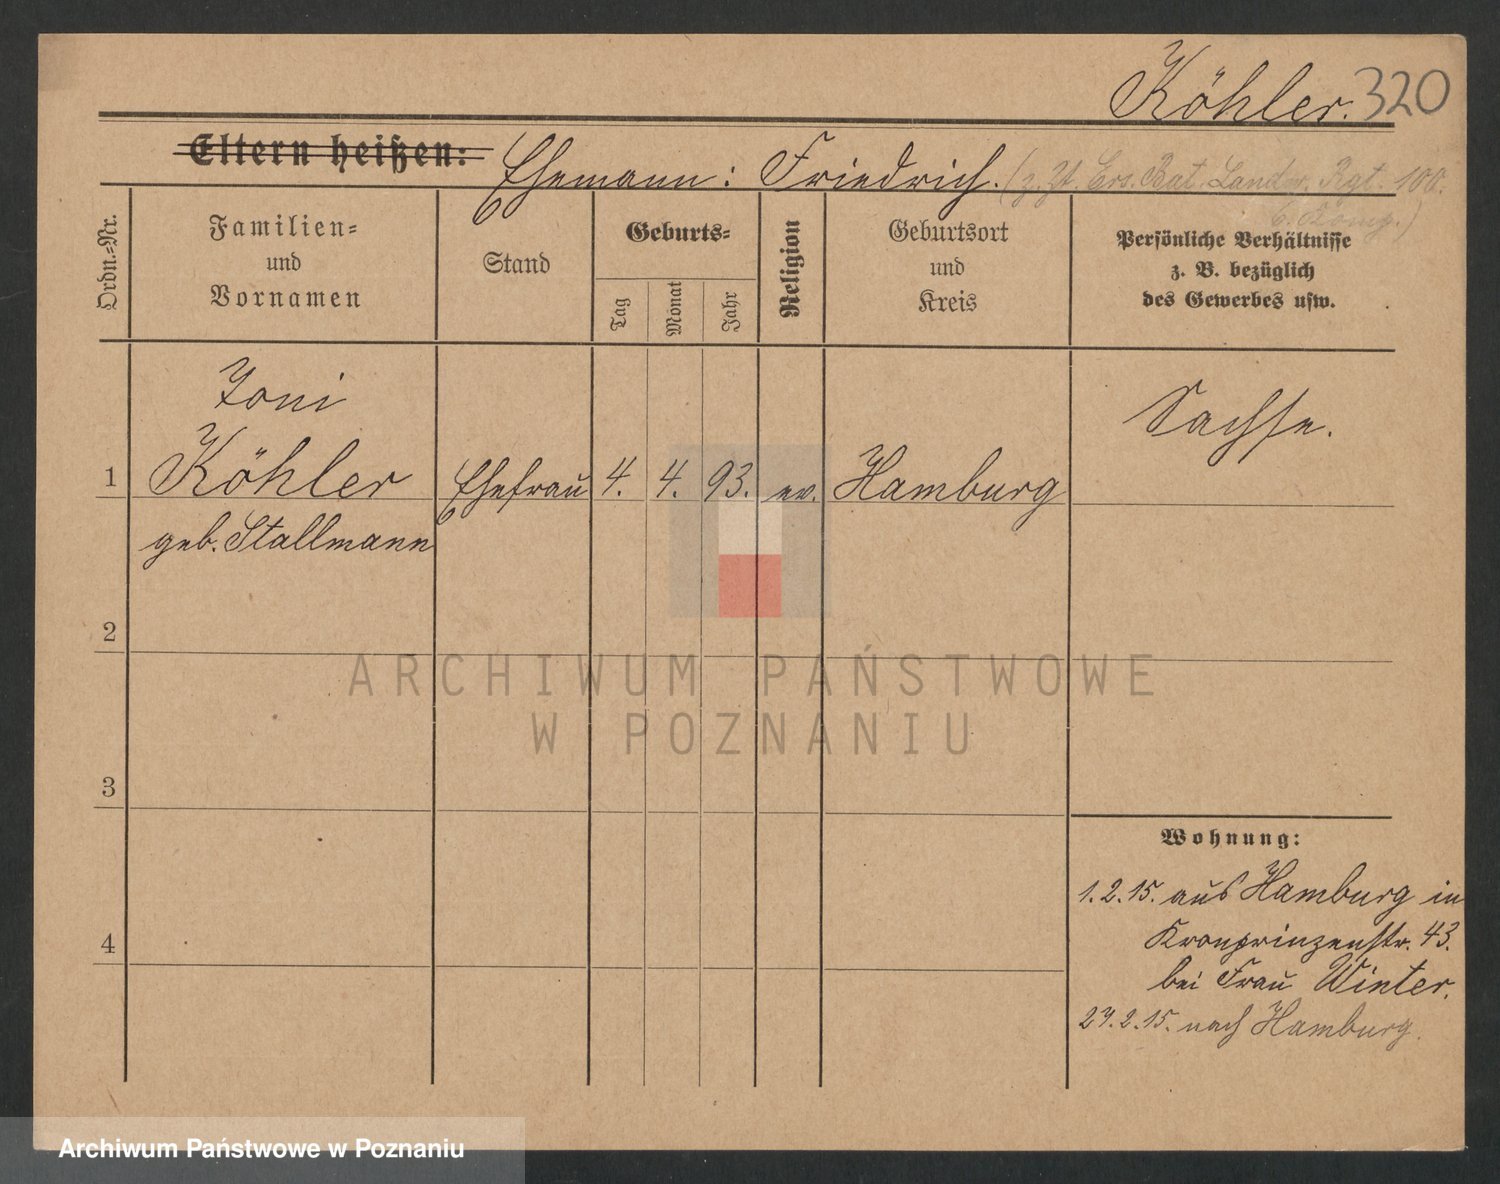 Köhler. 320
Eltern heißen: Ehemann: Friedrich. (z. Zt. Ers. Bat. Landw. Rgt. 100.
Ordn.-Nr.
Familien-
und
Vornamen
Stand
Geburts-
Tag
Monat
Jahr
Religion
Geburtsort
und
Kreis
Persönliche Verhältnisse
z. B. bezüglich
des Gewerbes usw.
Toni
Sachse.
1 Köhler Ehefrau 4. 4. 93. ev. Hamburg
geb. Stallmann
2
ARCHIWUM PAŃSTWOWE
W POZNANIU
3
Wohnung:
1.2.15. aus Hamburg in
Kronprinzenstr. 43.
4
bei Frau Winter.
27.2.15. nach Hamburg.
Archiwum Państwowe w Poznaniu